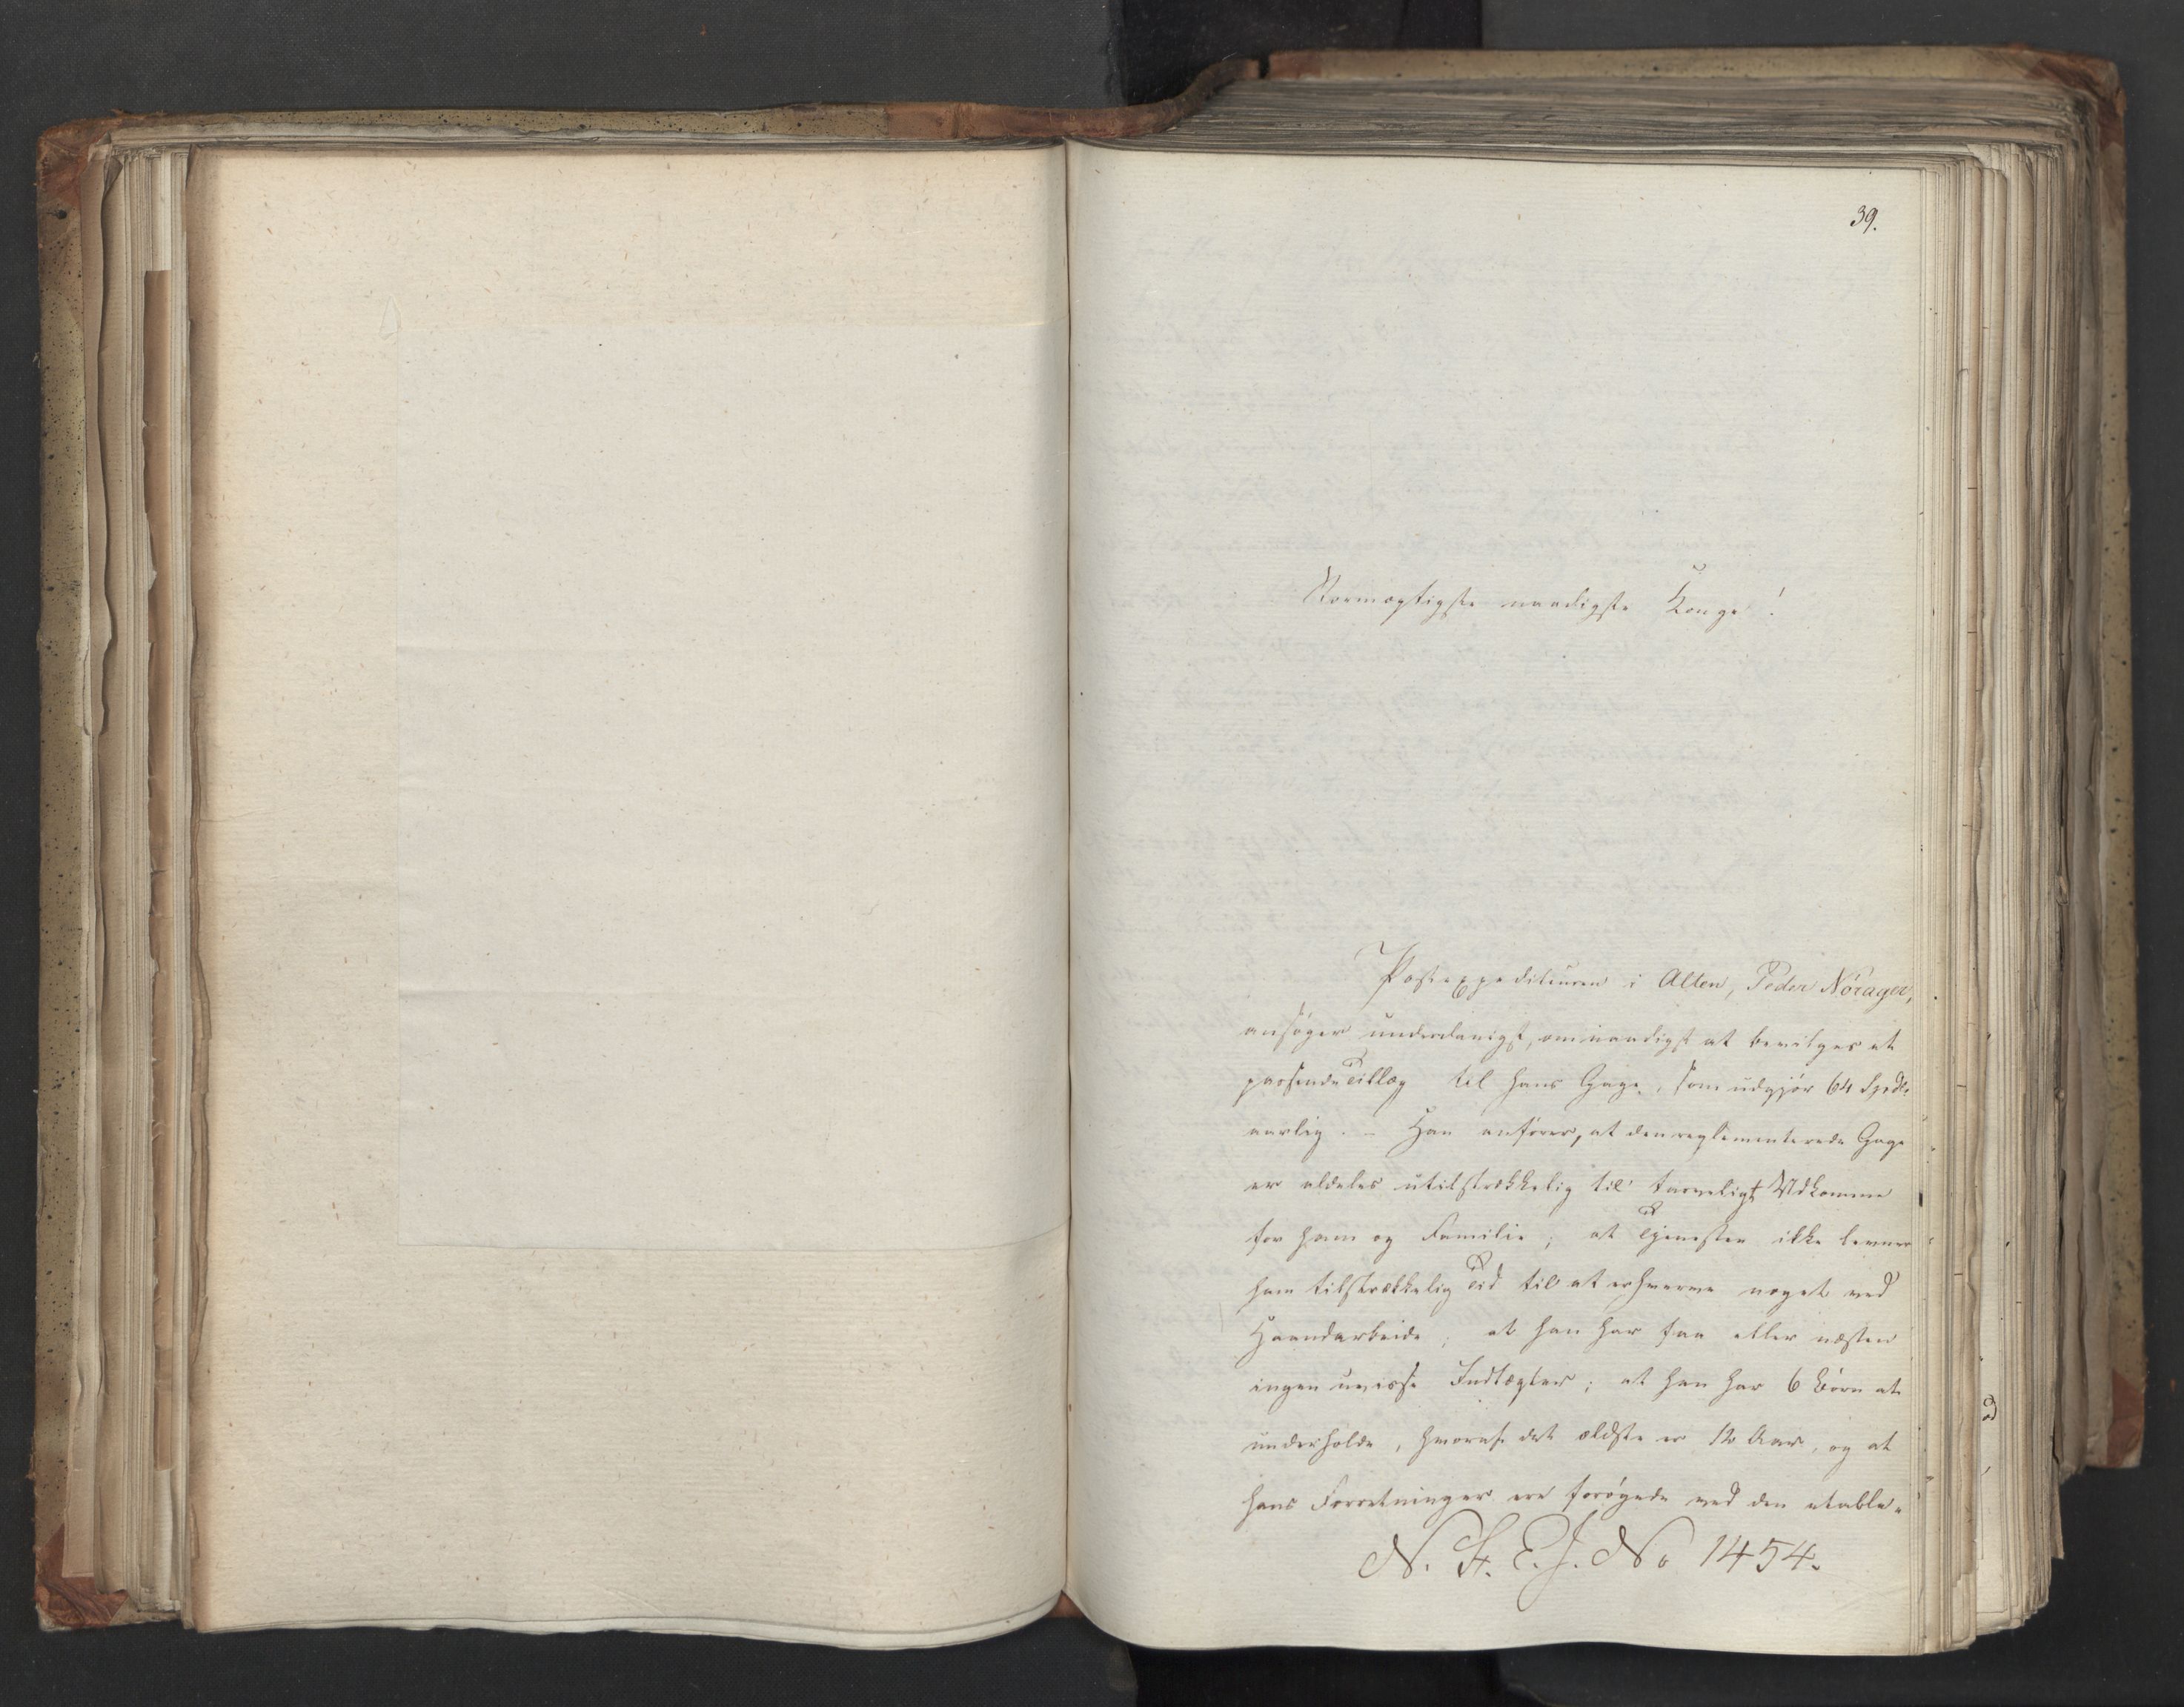 39.
Stormægtigste naadigste Konge!
Postexpediteuren i Alten, Peder Nörager,
ansøger underdanigst, om naadigst at bevilges et
passende Tillæg til hans Gage, som udgjør 64 Spdlr
aarlig. – Han anfører, at den reglementerede Gage
er aldeles utilstrækkelig til tarveligt Udkomme
for ham og Familie; at Tjenesten ikke levner
ham tilstrækkelig Tid til at erhverve noget ved
Haandarbeide; at han har faa eller næsten
ingen uvisse Indtægter; at han har 6 Børn at
underholde, hvoraf det ældste er 12 Aar, og at
hans Forretninger ere forøgede ved den etable-
N. St. E. J. No 1454.